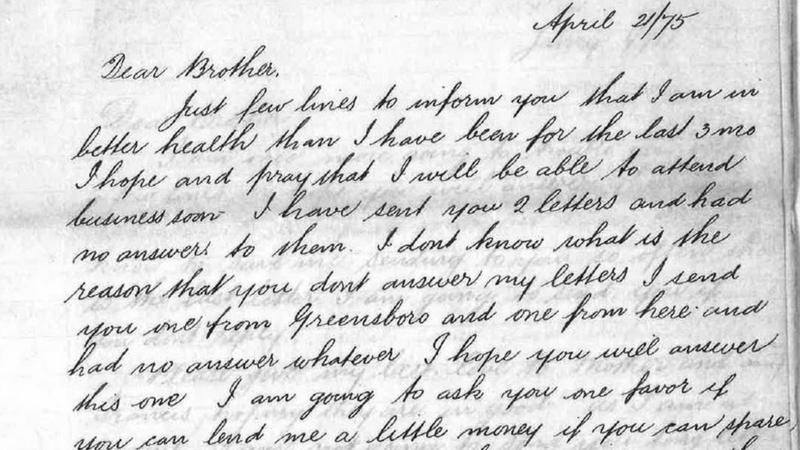 April 21/75
Dear Brother.
Just few lines to inform you that I am in
better health than I have been for the last 3 mo
I hope and pray that I will be able to attend
business soon I have sent you 2 letters and had
no answer to them. I dont know what is the
reason that you dont answer my letters I send
you one from Greensboro and one from here and
had no answer whatever I hope you will answer
this one I am going to ask you one favor if
you can lend me a little money if you can spare,